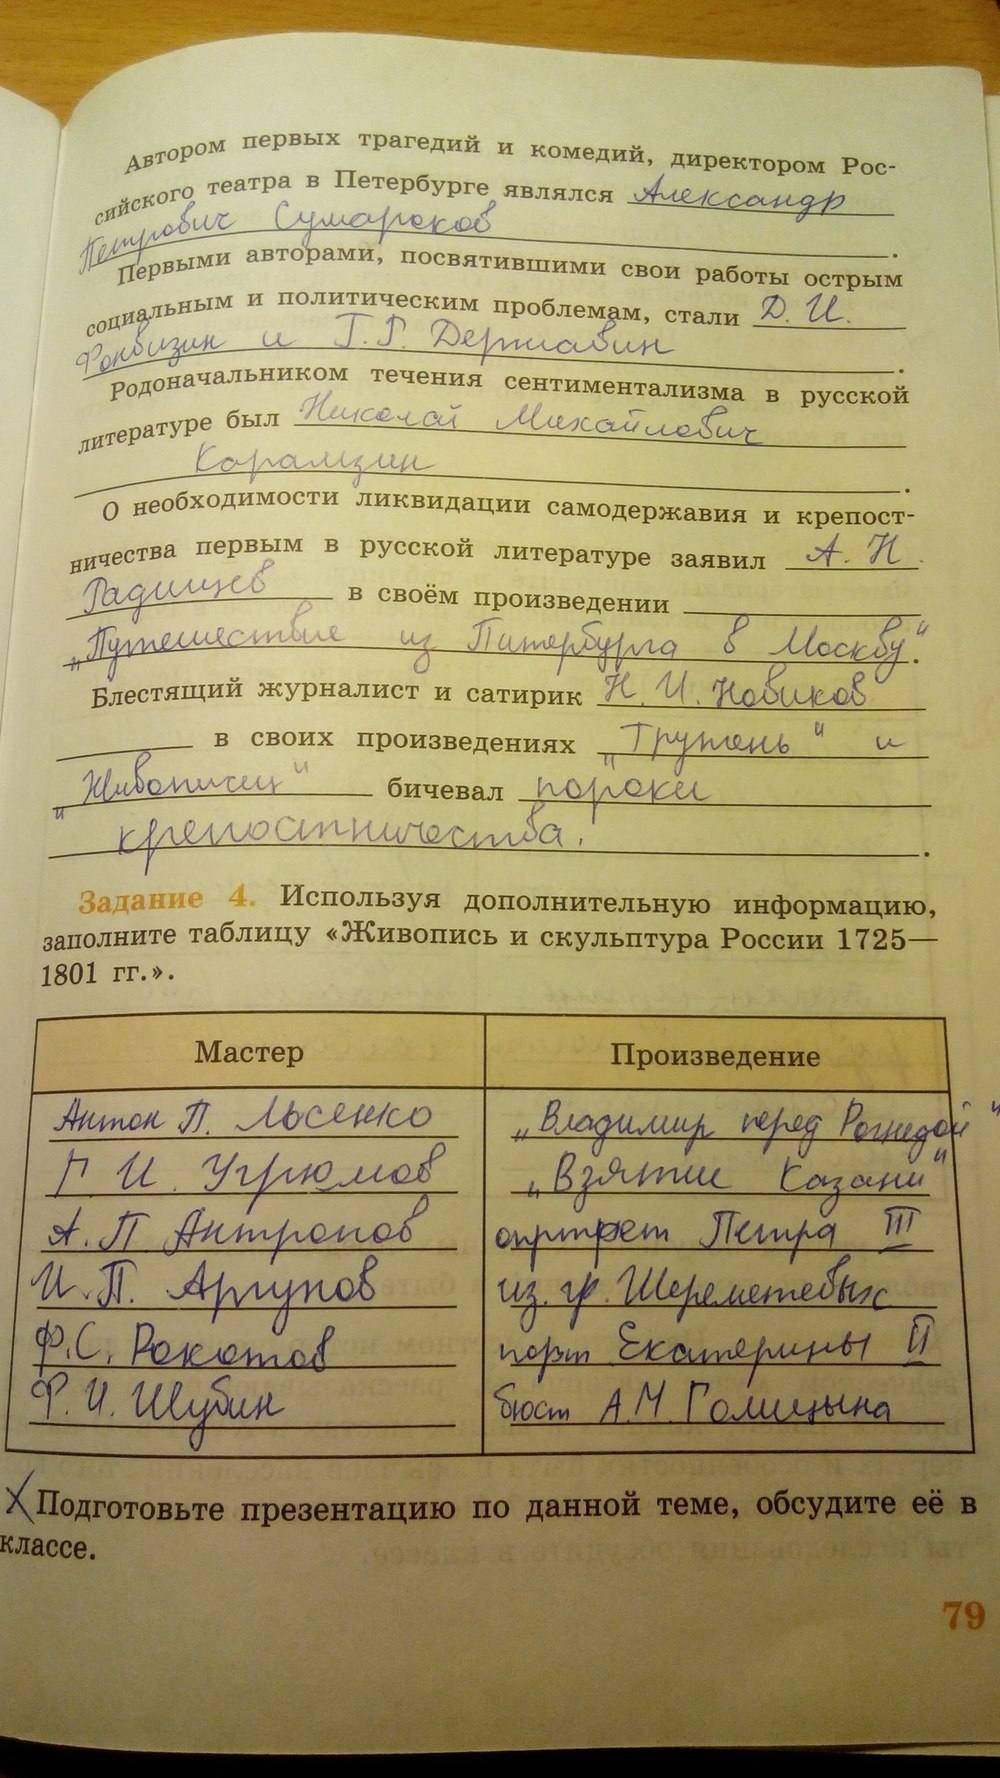 Автором первых трагедий и комедий, директором Рос-
сийского театра в Петербурге являлся Александр
Петрович Сумароков.
Первыми авторами, посвятившими свои работы острым
социальным и политическим проблемам, стали Д. И.
Фонвизин и Г. Р. Державин.
Родоначальником течения сентиментализма в русской
литературе был Николай Михайлович
Карамзин.
О необходимости ликвидации самодержавия и крепост-
ничества первым в русской литературе заявил А. Н.
Радищев в своём произведении
„Путешествие из Питербурга в Москву".
Блестящий журналист и сатирик Н. И. Новиков
в своих произведениях „Трутень" и
„Живописец" бичевал пороки
крепостничества.
Задание 4. Используя дополнительную информацию,
заполните таблицу «Живопись и скульптура России 1725—
1801 гг.».
Мастер Произведение
Антон П. Лосенко „Владимир перед Рогнедой"
Г. И. Угрюмов „Взятие Казани"
А. П. Антропов портрет Петра III
И. П. Аргунов из. гр. Шереметевых
Ф. С. Рокотов порт Екатерины II
Ф. И. Шубин бюст А. М. Голицына
Подготовьте презентацию по данной теме, обсудите её в
классе.
79